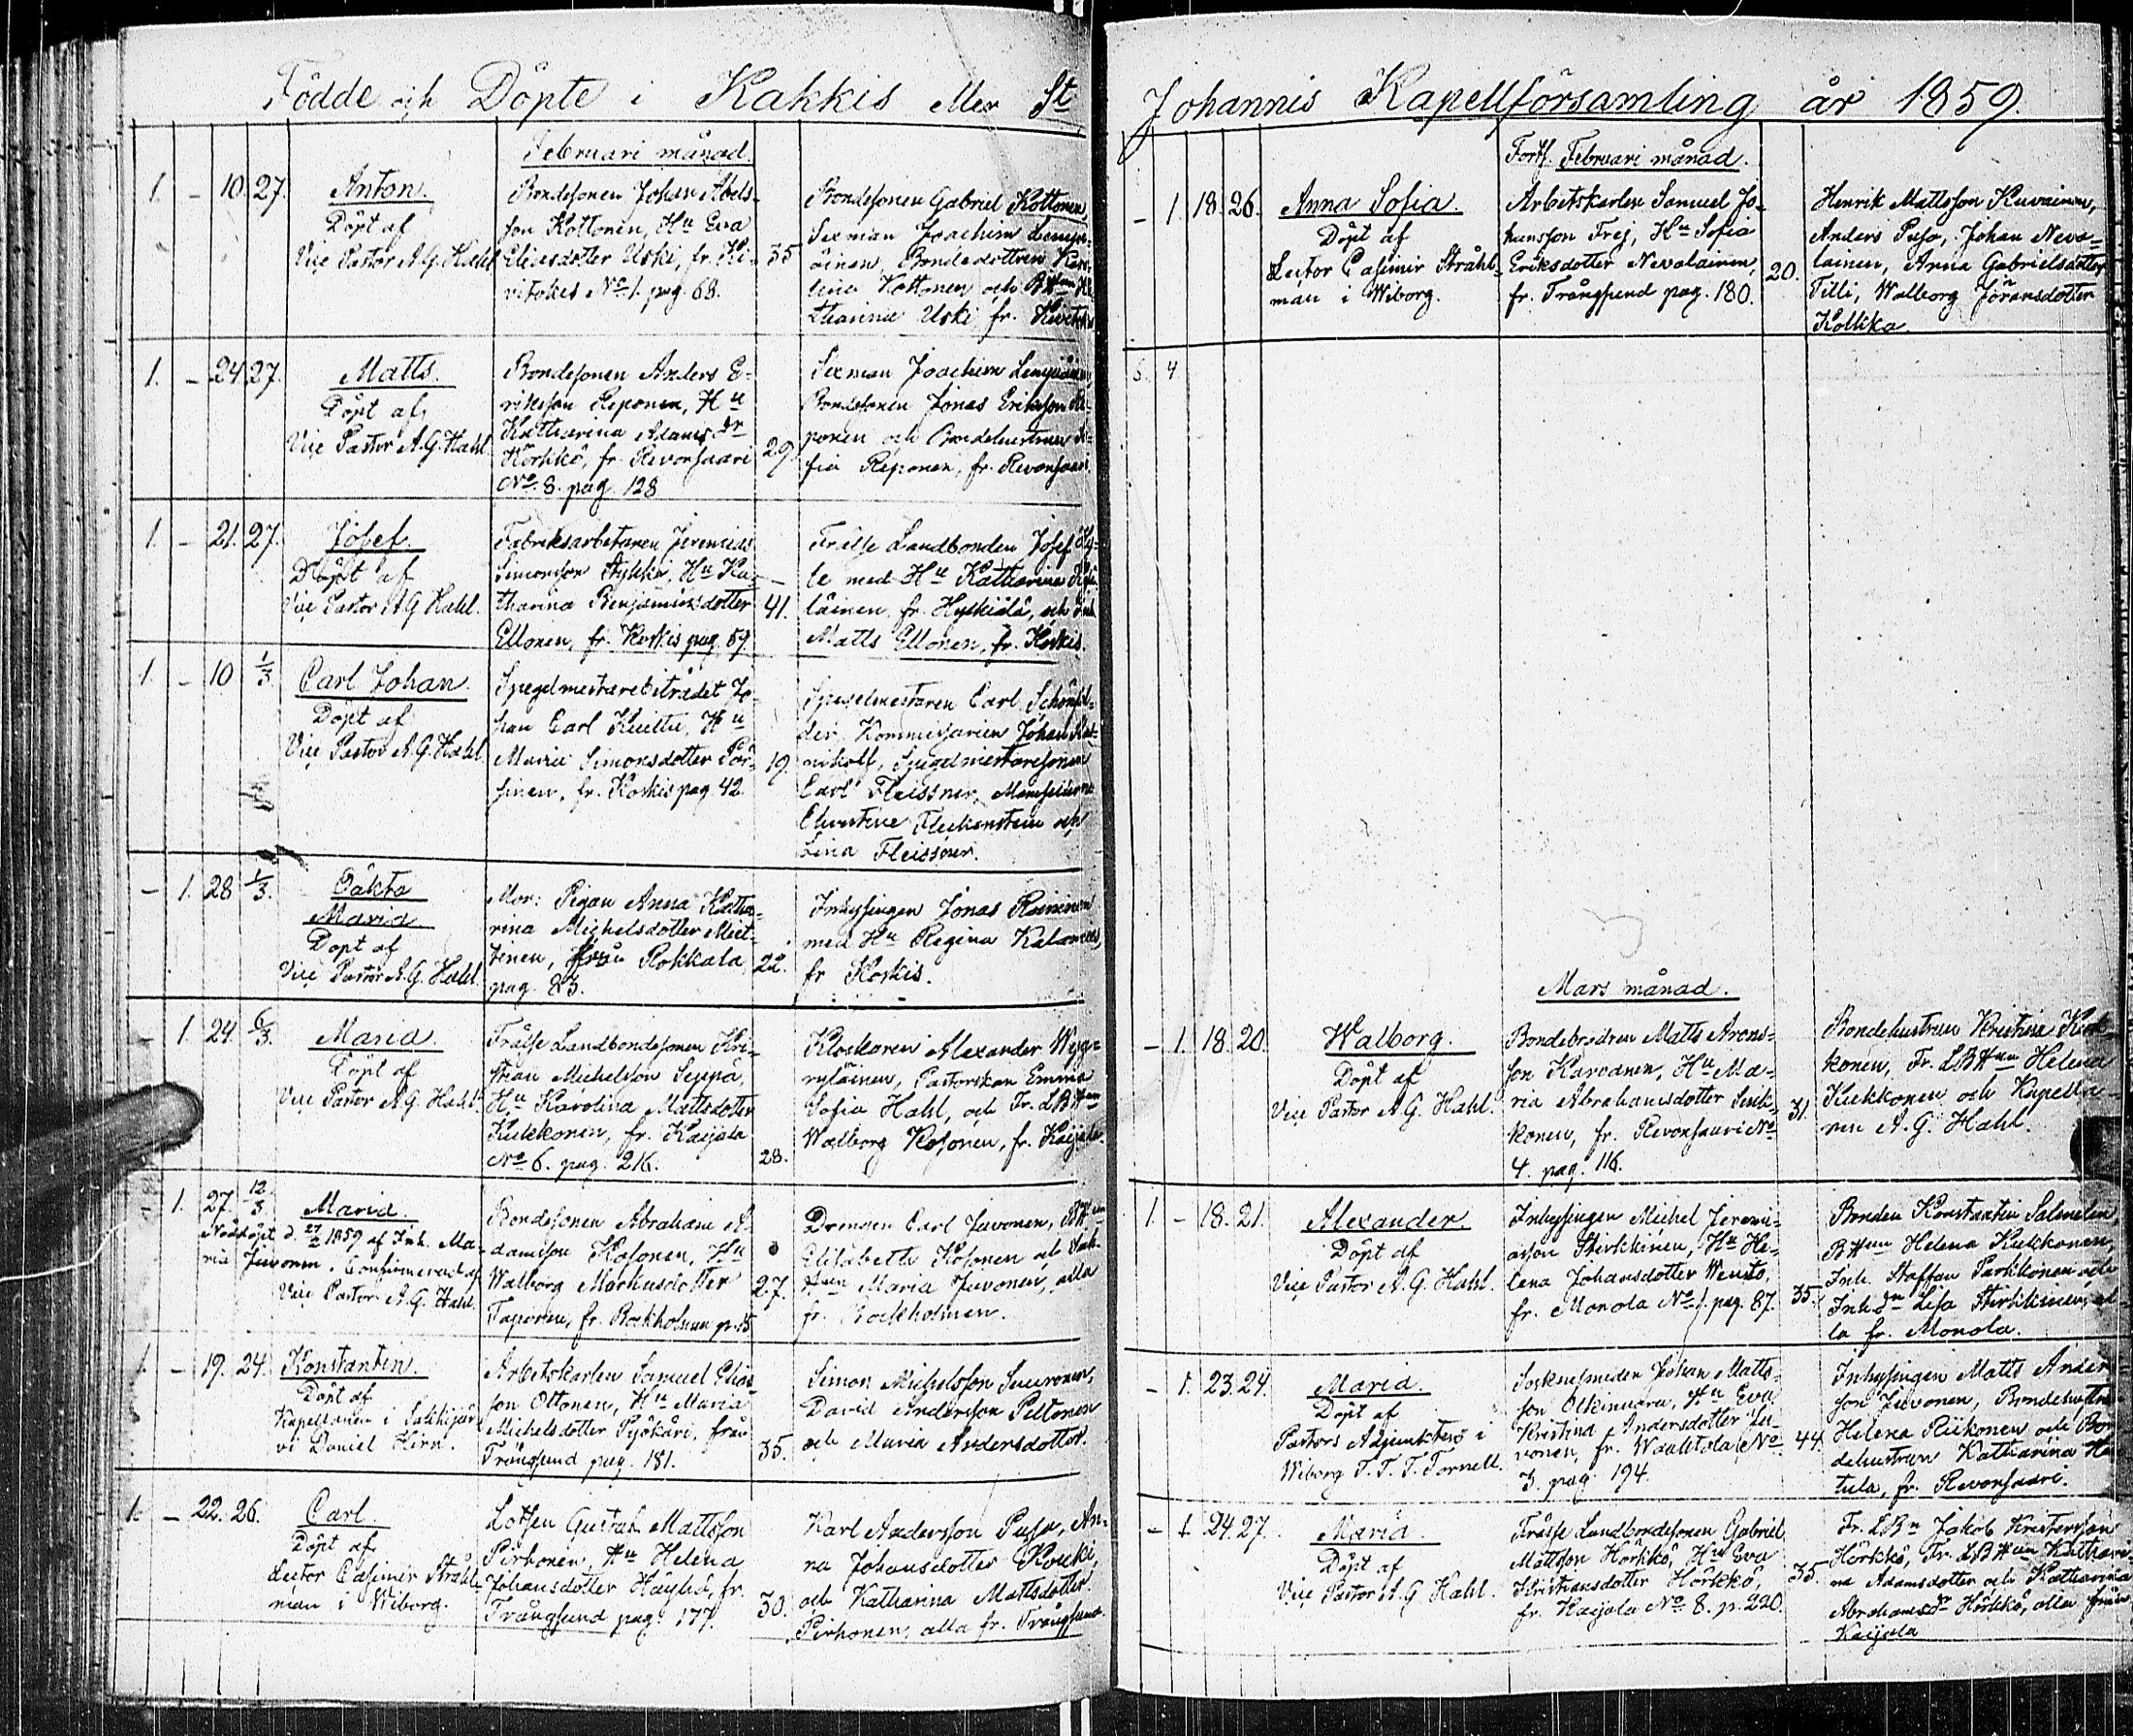 Födde och Döpte i Kakkis eller St
Februari månad.
1. – 10. 27. Anton.
Döpt af
Vice Pastor A. G. Hahl
Bondesonen Johan Abels-
son Kottonen, Hu Eva
Eliæsdotter Uski, fr. Ki-
No 1. pag. 68.
35
Bondesonen Gabriel Kottonen,
Sexman Joachim
Bondedottren
Kottonen och
Uski fr.
1. – 24. 27. Matts.
Döpt af
Vice Pastor A. G. Hahl.
Bondesonen Anders E-
riksson Reponen, Hu
Katharina Adams dr
Hörkkö, fr. Revonsaari
No 8. pag. 128
29.
Sexman Joachim
Bondesonen Jonas Eriksson Re-
ponen och Bondehustrun So-
fia Reponen, fr. Revonsaari.
1. – 21. 27. Josef.
Döpt af
Vice Pastor A. G. Hahl.
Fabriksarbetaren Jeremias
Simonsson Hu Ka-
tharina Benjaminsdotter
Ellonen, fr. Koskis pag. 59.
41.
Frälse Landbonden Josef
med Hu Katharina
läinen fr. och
Matts Ellonen, fr. Koskis.
1. – 10 1/3. Carl Johan.
Döpt af
Vice Pastor A. G. Hahl
Spegelmästarebiträdet Jo-
han Carl Hu
Maria Simonsdotter Pär-
sinen, fr. Koskis pag. 42.
19.
Spegelmästaren Carl
Kommissarien Johan
Spegelmästaresonen
Carl Fleissner,
och
Lina Fleissner.
– 1. 28 1/3. Oäkta
Maria
Döpt af
Vice Pastor A. G. Hahl.
Mor: Pigan Anna Katha-
rina Michelsdotter Miet-
tinen, från Rokkala
pag. 83.
22.
Inhysingen Jonas
med Hu Regina
fr Koskis.
– 1. 24. 6/3. Maria.
Döpt af
Vice Pastor A. G. Hahl.
Frälse Landbondesonen Kri-
stian Michelsson Seppä,
Hu Karolina Mattsdotter
Kukkonen, fr. Kaijala
No 6. pag. 216.
28.
Klockaren Alexander
Pastorskan Emma
Sofia Hahl, och Fr. LBHun
Walborg Kosonen, fr. Kaijala.
1. 27. 12/3. Maria.
Nöddöpt d. 27/2 1859 af Inh. Ma-
ria Juvonen. Confirmerad af
Vice Pastor A. G. Hahl.
Bondesonen Abraham A-
damsson Kosonen, Hu
Walborg Markusdotter
Taponen, fr. Bockholmen p. 15
27.
Drengen Carl Juvonen, BHun
Elisabeth Kosonen och
Maria Juvonen, alla
fr. Bockholmen.
1. – 19. 24. Konstantin.
Döpt af
Kapellanen i Säkkijär-
vi Daniel Hirn.
Arbetskarlen Samuel Elias-
son Ottonen, Hu Maria
Michelsdotter Pyökäri, från
Trångsund pag. 181.
35.
Simon Michelsson
David Andersson Peltonen
och Maria Andersdotter.
1. – 22. 26. Carl.
Döpt af
Lector Casimir Stråhl-
man i Wiborg.
Lotsen Gustaf Mattsson
Pirhonen, Hu Helena
Johansdotter Häyhä, fr.
Trångsund pag. 177.
30.
Karl Andersson Pusa, An-
na Johansdotter Kouki,
och Katharina Mattsdotter
Pirhonen, alla fr. Trångsund.
Johannis Kapellförsamling år 1859.
Forts. Februari månad.
– 1. 18. 26. Anna Sofia.
Döpt af
Lector Casimir Stråhl-
man i Wiborg.
Arbetskarlen Samuel Jo-
hansson Frej, Hu Sofia
Eriksdotter Nevalainen,
fr. Trångsund pag. 180.
20.
Henrik Mattsson Kuvainen,
Anders Pusa, Johan Neva-
lainen, Anna Gabrielsdotter
Tilli, Walborg Jöransdotter
Kollika
5. 4
Mars månad.
– 1. 18. 20. Walborg.
Döpt af
Vice Pastor A. G. Hahl.
Bondebrodren Matts Arons-
son Karvanen, Hu Ma-
ria Abrahamsdotter Sink-
konen, fr. Revonsaari No
4. pag. 116.
31.
Bondehustrun Kristina Kuk-
konen, Fr. LBHun Helena
Kukkonen och Kapella-
nen A. G. Hahl.
1. – 18. 21. Alexander.
Döpt af
Vice Pastor A. G. Hahl.
Inhysingen Michel Jeremi-
asson Stirkkinen, Hu He-
lena Johansdotter Wento,
fr. Monola No 1. pag. 87.
35.
Bonden Konstantin Salmelin,
BHun Helena Kukkonen,
Inh. Staffan Parkkonen och
Inh dn Lisa Stirkkinen, al-
la fr. Monola.
– 1. 23. 24. Maria.
Döpt af
Pastors Adjunkten i
Wiborg T. T. T. Tornell.
Socknesmeden Johan Matts-
son Olkinuora, Hu Eva
Kristina Andersdotter Ju-
vonen, fr. Waahtola No
3. pag. 194.
44.
Inhysingen Matts Anders-
son Juvonen, Bondehustrun
Helena Piikonen och Bon-
dehustrun Katharina
fr. Revonsaari.
– 1. 24. 27. Maria.
Döpt af
Vice Pastor A. G. Hahl.
Frälse Landbondesonen Gabriel
Mattsson Hörkkö, Hu Eva
Kristiansdotter Hörkkö,
fr. Kaijala No 8. p. 220.
35.
Fr. LBn Jakob Kristersson
Hörkkö, Fr. LBHun Kathari-
na Adamsdotter och Katharina
Abrahamsdr Hörkkö, alla från
Kaijala